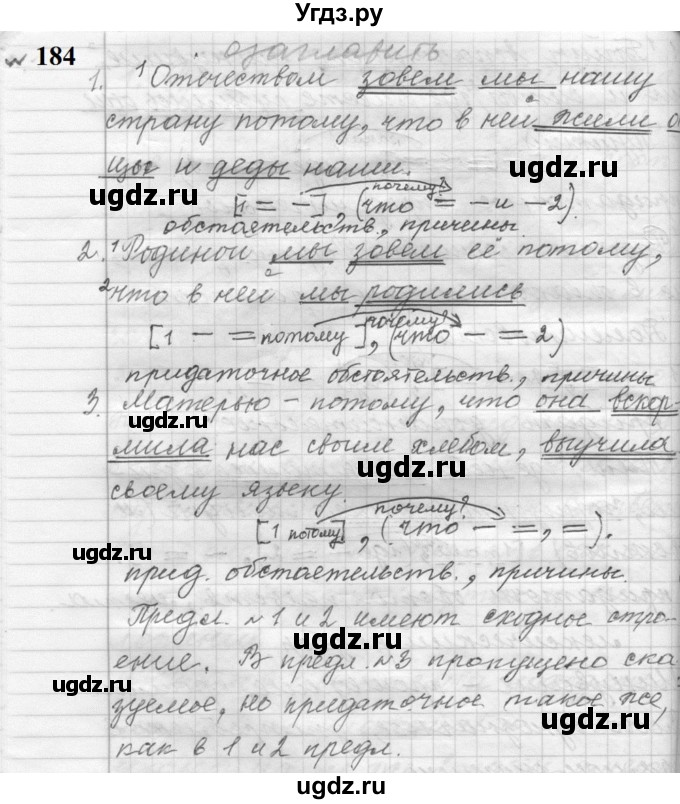 Угдз.ру
184 озаглавить
1. ¹Отечеством зовем мы нашу
страну потому, что в ней жили о
цы и деды наши.
почему?
[1 = –], (что = – и – 2).
обстоятельств., причины.
2. ¹Родиной мы зовем её потому,
²что в ней мы родились
почему?
[1 – = потому], (что – = 2)
придаточное обстоятельств., причины
3. Матерью – потому, что она вскор-
мила нас своим хлебом, выучила
своему языку.
почему?
[1 потому], (что – =, =).
прид. обстоятельств., причины.
Предл. №1 и 2 имеют сходные стро-
ение. В предл. №3 пропущено ска
зуемое, но придаточное такое же,
как в 1 и 2 предл.
ugdz.ru
ugdz.ru
ugdz.ru
ugdz.ru
ugdz.ru
ugdz.ru
ugdz.ru
ugdz.ru
ugdz.ru
ugdz.ru